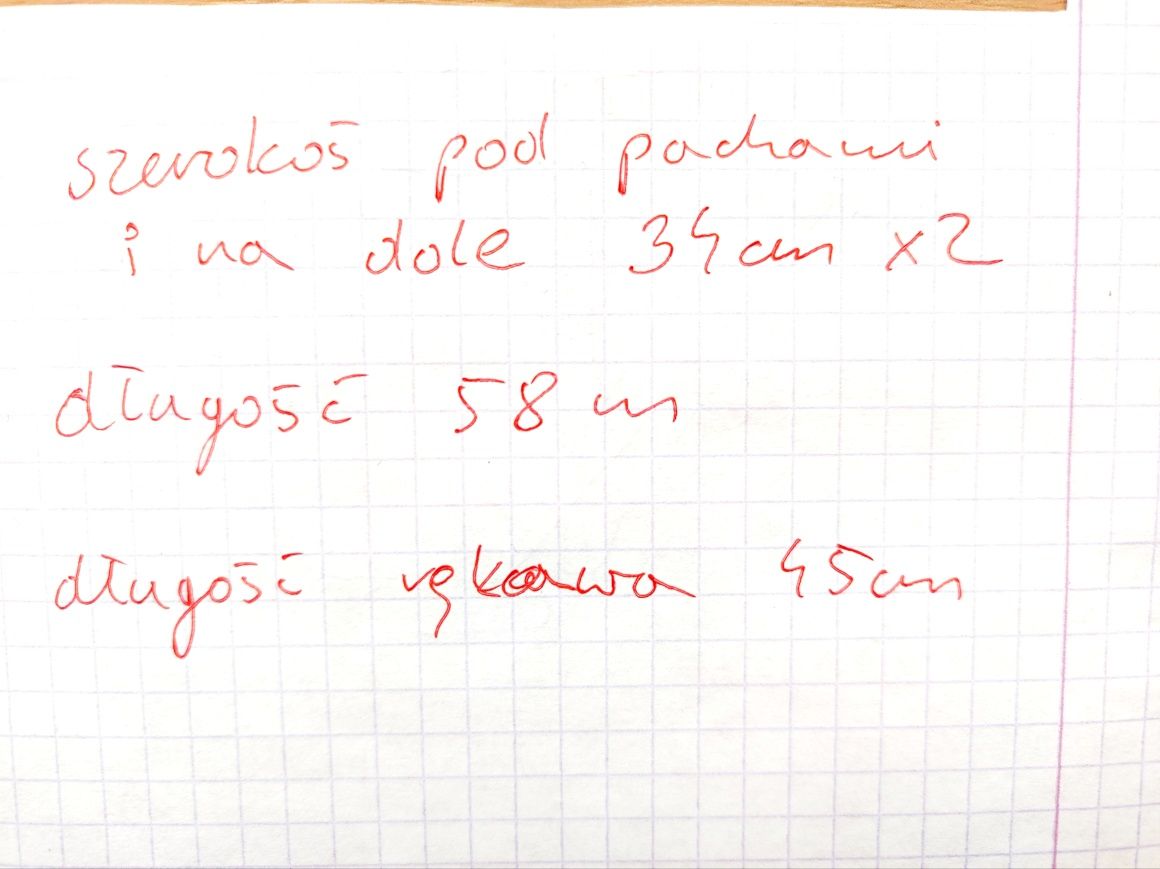 szerokoś pod pachami
i na dole 34cm x2
długość 58 cm
długość rękawa 45cm